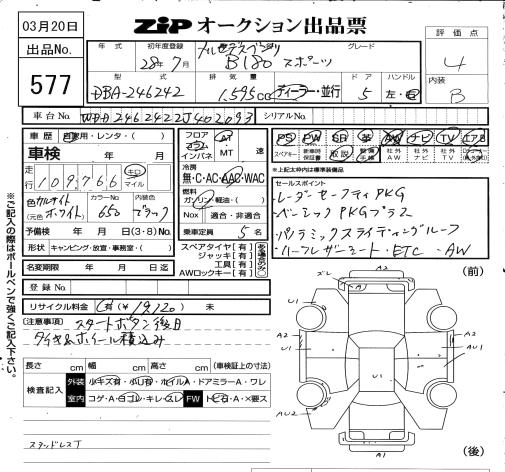 03月20日
ZIP オークション出品票
出品No.
577
年式
初年度登録
28年7月
メルセデスベンツ
B180 スポーツ
グレード
評価点
4
内装
B
型式
DBA-246242
排気量
1,595cc
ディーラー・並行
ドア
5
ハンドル
左・右
車台No.
WDD2462422J402093
シリアルNo.
車歴
自家用・レンタ・( )
車検
年 月
走行
109,766
キロ
マイル
色
(元色
カルサイト
ホワイト)
カラーNo.
650
内装色
ブラック
予備検
年 月 日(3・8)No.
形状
キャンピング・放壹・事務室・( )
名変期限
年 月 日迄
登録No.
フロア
コラム
インパネ
AT
MT
速
冷房
無・C・AC・AAC・WAC
燃料
ガソリン・軽油・( )
Nox
適合・非適合
乗車定員
5 名
スペアタイヤ[有]
ジャッキ[有]
工具[有]
AWロックキー[有]
ある場合のみ○
PS PW SR 革 AW ナビ TV エアB
スペアキー
新車時保証書
取説
整備手帳
社外AW
社外ナビ
社外TV
*上記太枠内は標準装備品
セールスポイント
・レーダーセーフティPKG
・ベーシックPKGプラス
・パノラミックスライディングルーフ
・ハーフレザーシート・ETC・AW
リサイクル料金
有(¥ 19,120) 未
(注意事項)
スタートボタン後日
タイヤ&ホイール積込み
※ご記入の際はボールペンで強くご記入下さい。
長さ cm
幅 cm
高さ cm
(車検証上の寸法)
検査記入
外装
小キズ有・小凹有・ホイルA・ドアミラーA・ワレ
室内
コゲ・A・ヨゴレ・キレ・スレ
FW
トビ石・A・×要ス
スタッドレスT
(前)
(後)
ズレ
A2
U1
A1
A2
U1
U1
A2
AU1
AU2
A1